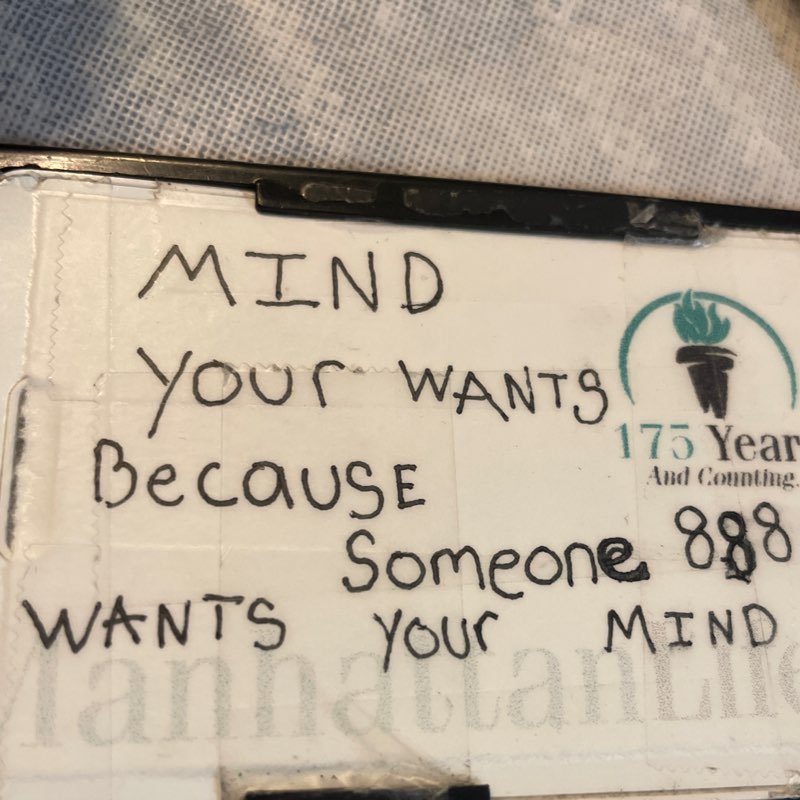 MIND
Your WANTS
175 Year
And Counting.
Because
Someone 888
WANTS your MIND
ManhattanLife